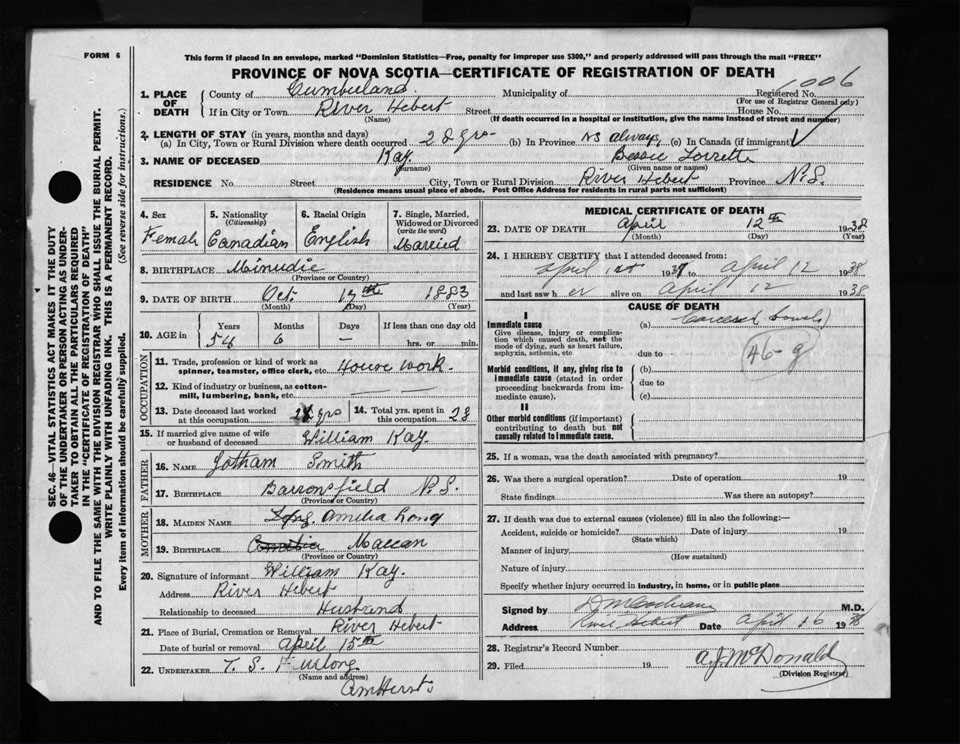 FORM 6
This form if placed in an envelope, marked "Dominion Statistics—Free, penalty for improper use $300," and properly addressed will pass through the mail "FREE"
PROVINCE OF NOVA SCOTIA—CERTIFICATE OF REGISTRATION OF DEATH
SEC. 46—VITAL STATISTICS ACT MAKES IT THE DUTY
OF THE UNDERTAKER OR PERSON ACTING AS UNDER-
TAKER TO OBTAIN ALL THE PARTICULARS REQUIRED
IN THE "CERTIFICATE OF REGISTRATION OF DEATH"
AND TO FILE THE SAME WITH THE DIVISION REGISTRAR WHO SHALL ISSUE THE BURIAL PERMIT.
WRITE PLAINLY WITH UNFADING INK. THIS IS A PERMANENT RECORD.
Every item of information should be carefully supplied. (See reverse side for instructions.)
1. PLACE OF DEATH
County of Cumberland Municipality of Registered No. 1006
(For use of Registrar General only)
If in City or Town River Hebert Street House No.
(Name) (If death occurred in a hospital or institution, give the name instead of street and number)
2. LENGTH OF STAY (in years, months and days)
(a) In City, Town or Rural Division where death occurred 28 yrs (b) In Province NS always (c) In Canada (if immigrant)
3. NAME OF DECEASED Kay Bessie
(Surname) (Given name or names)
RESIDENCE No. Street City, Town or Rural Division River Hebert Province N.S.
(Residence means usual place of abode. Post Office Address for residents in rural parts not sufficient)
4. Sex
Female
5. Nationality
(Citizenship)
Canadian
6. Racial Origin
English
7. Single, Married,
Widowed or Divorced
(write the word)
Married
8. BIRTHPLACE Minudie
(Province or Country)
9. DATE OF BIRTH Oct. 1883
(Month) (Day) (Year)
10. AGE in Years Months Days If less than one day old
54 6 — hrs. or min.
OCCUPATION
11. Trade, profession or kind of work as
spinner, teamster, office clerk, etc. House work.
12. Kind of industry or business, as cotton-
mill, lumbering, bank, etc. —
13. Date deceased last worked
at this occupation yrs
14. Total yrs. spent in
this occupation 28
15. If married give name of wife
or husband of deceased William Kay
FATHER
16. NAME Jotham Smith
17. BIRTHPLACE Barronsfield N.S.
(Province or Country)
MOTHER
18. MAIDEN NAME Amelia Long
19. BIRTHPLACE Maccan
(Province or Country)
20. Signature of informant William Kay.
Address River Hebert
Relationship to deceased Husband
21. Place of Burial, Cremation or Removal River Hebert
Date of burial or removal April 15th
22. UNDERTAKER T. S. Furlong.
(Name and address)
Amherst
MEDICAL CERTIFICATE OF DEATH
23. DATE OF DEATH April 12th 1938
(Month) (Day) (Year)
24. I HEREBY CERTIFY that I attended deceased from:
April 1st 193 to April 12 1938
and last saw her alive on April 12 1938
CAUSE OF DEATH
I
Immediate cause
Give disease, injury or complica-
tion which caused death, not the
mode of dying, such as heart failure,
asphyxia, asthenia, etc
(a) bowels
due to
46-g
Morbid conditions, if any, giving rise to
immediate cause (stated in order
proceeding backwards from im-
mediate cause).
(b)
due to
(c)
II
Other morbid conditions (if important)
contributing to death but not
causally related to immediate cause.
25. If a woman, was the death associated with pregnancy?
26. Was there a surgical operation? Date of operation 19
State findings Was there an autopsy?
27. If death was due to external causes (violence) fill in also the following:—
Accident, suicide or homicide? Date of injury 19
(State which)
Manner of injury
(How sustained)
Nature of injury
Specify whether injury occurred in industry, in home, or in public place
Signed by D McCochrane M.D.
Address River Hebert Date April 16 1938
28. Registrar's Record Number
29. Filed 19 A.J. McDonald
(Division Registrar)